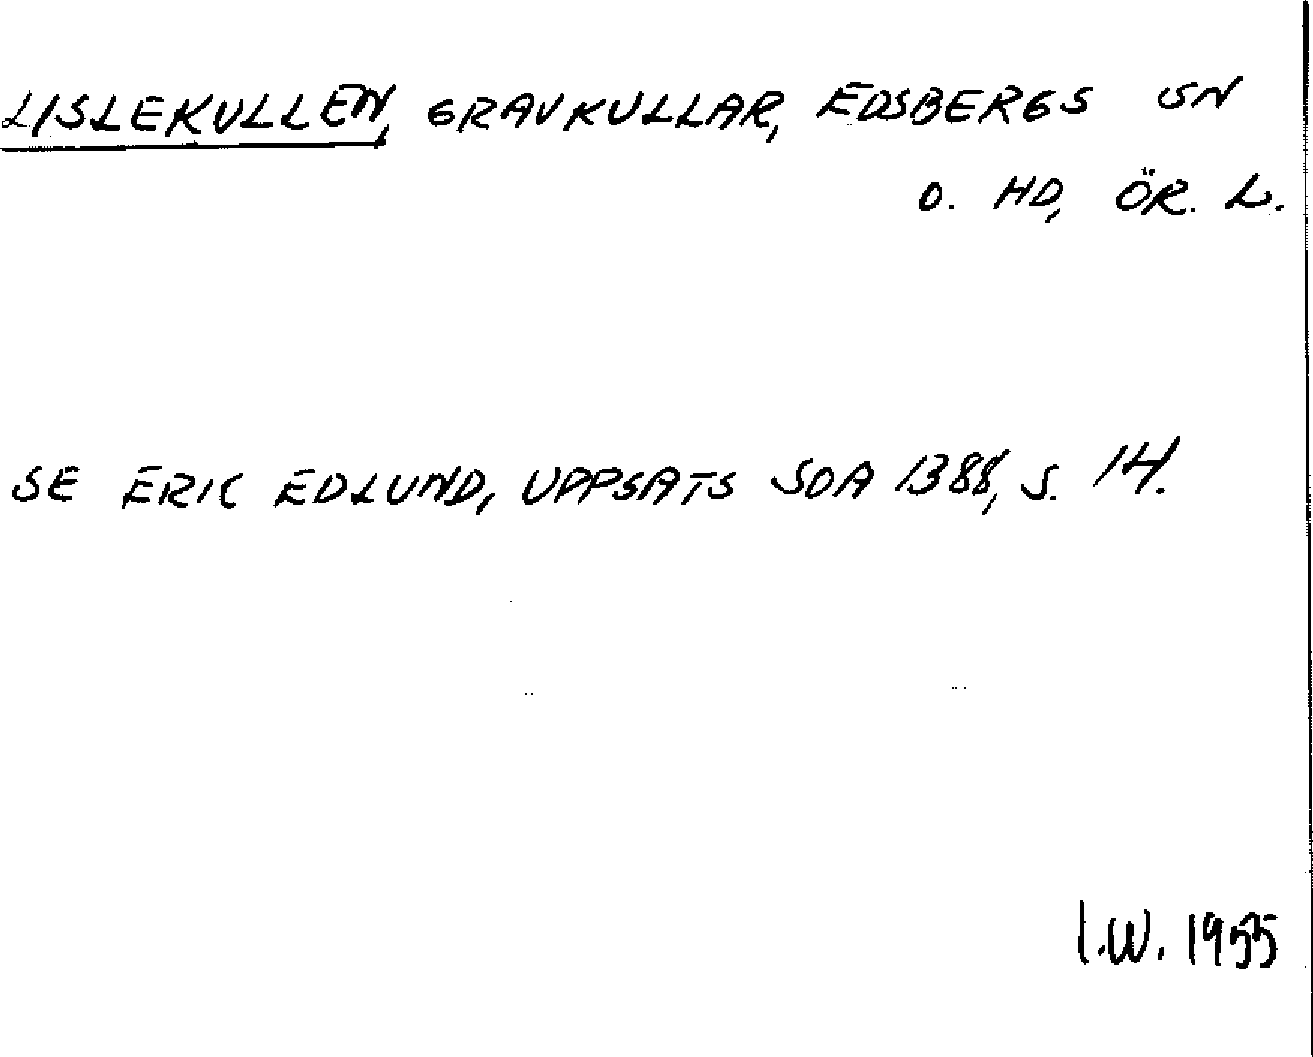 LISLEKULLEN, GRAVKULLAR, EDSBERGS SN
O. HD, ÖR. L.
SE ERIC EDLUND, UPPSATS SOA 1388, S. 14.
I.W. 1955